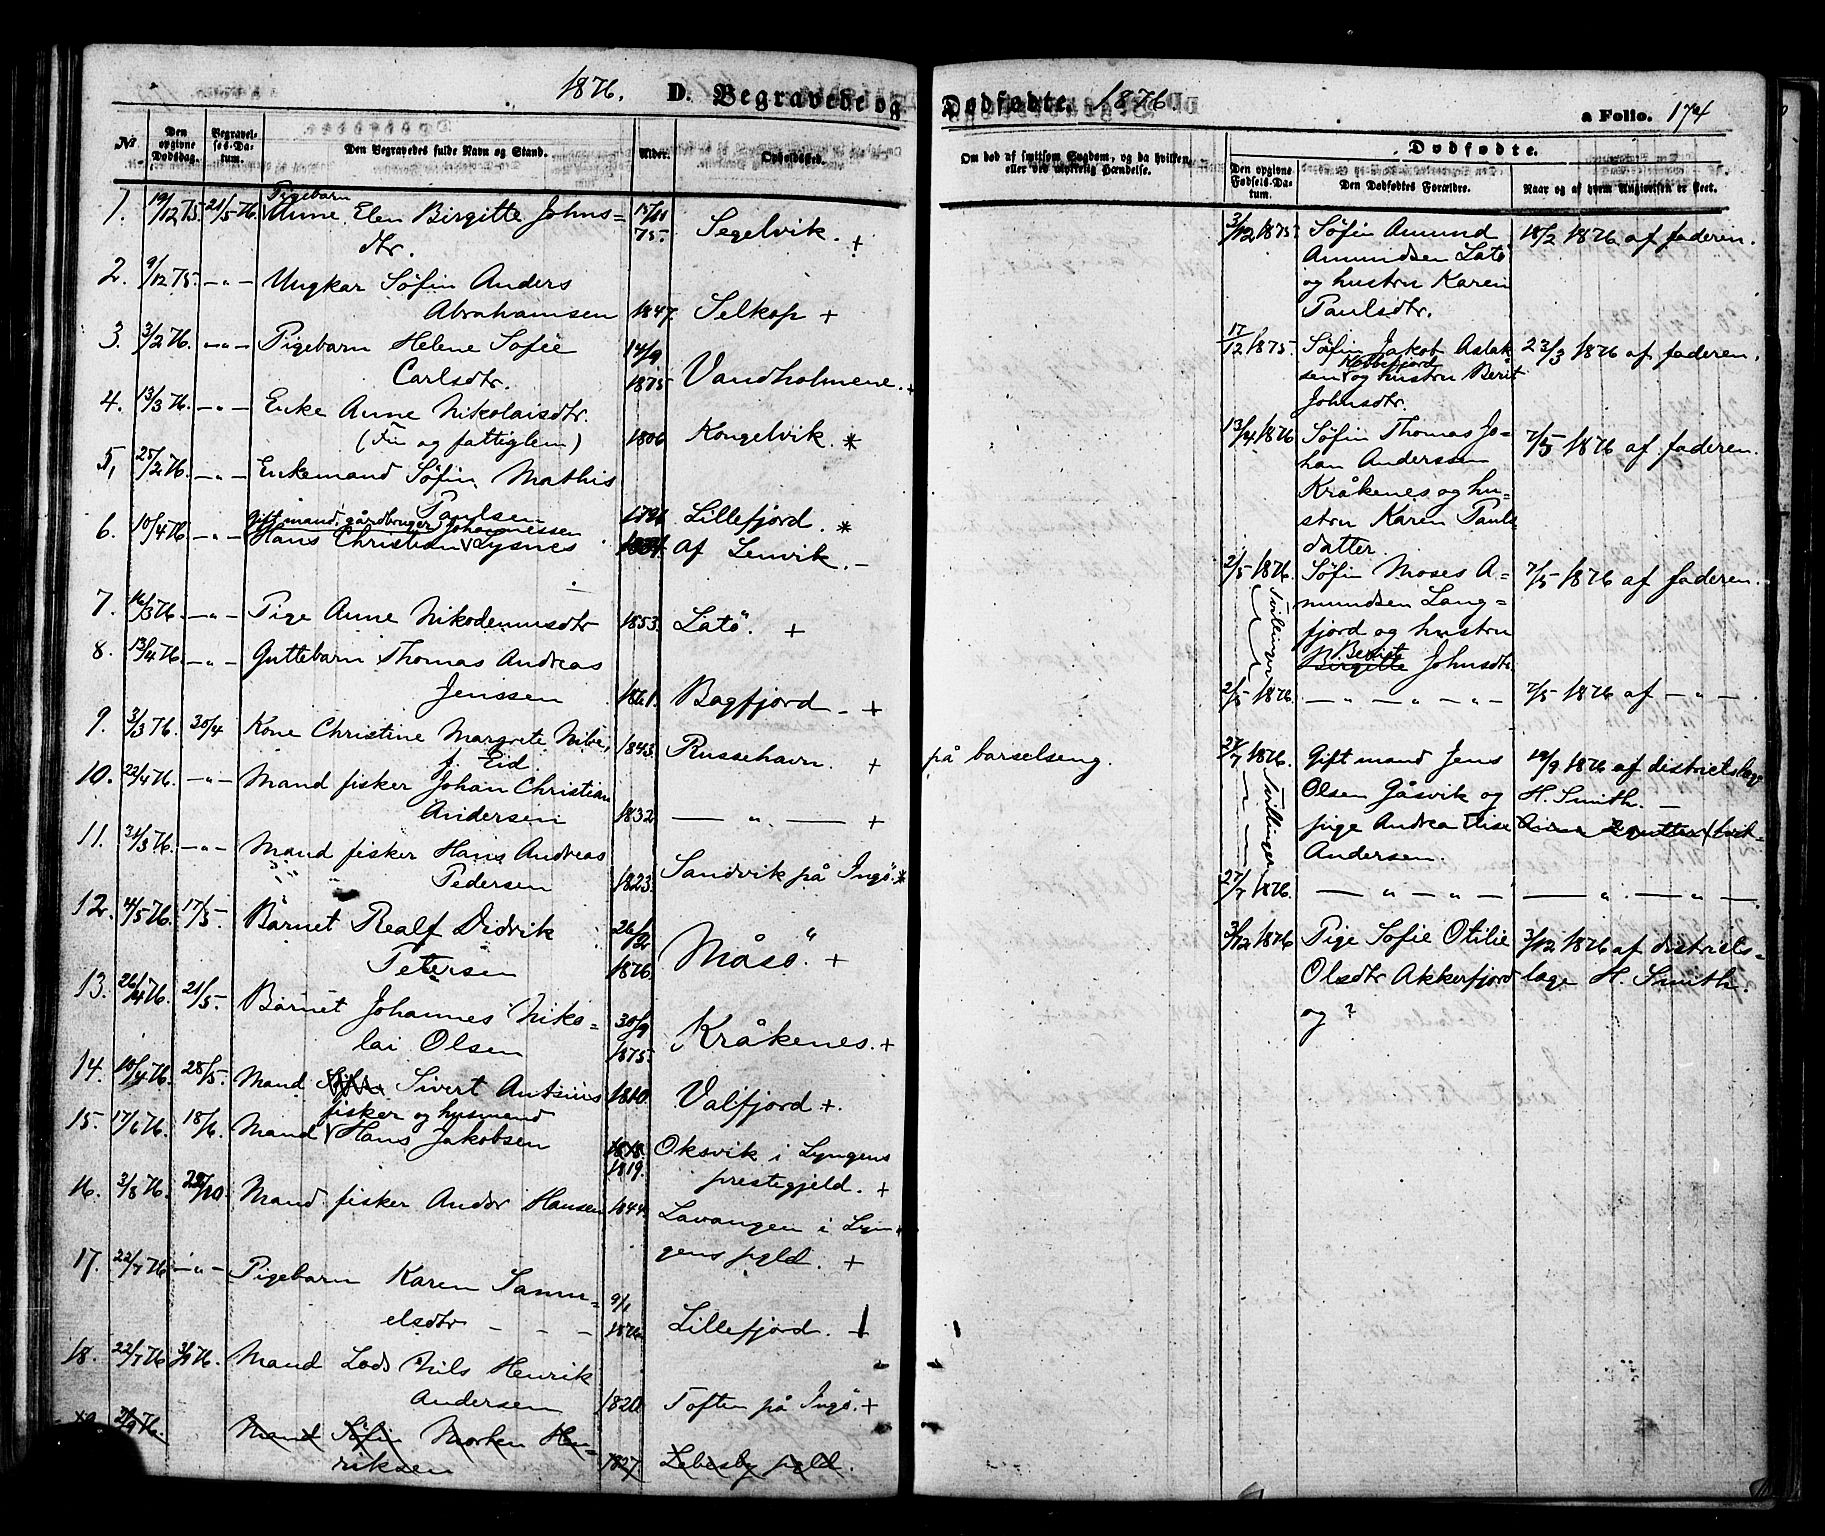 1876. D. Begravede og
Dødfødte. 1876
a Folio. 174
№
Den opgivne Dødsdag.
Begravelses-Datum.
Den Begravedes fulde Navn og Stand.
Alder.
Opholdssted.
Om død af smitsom Sygdom, og da hvilken, eller ved ulykkelig Hændelse.
Dødfødte.
Den opgivne Fødsels-Datum.
Den Dødfødtes Forældre.
Naar og af hvem Angivelsen er skeet.
Pigebarn
1. 19/12 75. 21/5 76. Anne Elen Birgitte Johns= 15/11 75. Segelvik. +
dtr.
2. 9/12 75. —"— Ungkar Søfin Anders
Abrahamsen 1847. Selkop +
3. 3/2 76. —"— Pigebarn Helene Sofie 14/9
Carlsdtr. 1875 Vandholmene. +
4. 13/3 76. —"— Enke Anne Nikolaisdtr.
(Fin og fattiglem) 1806 Kongelvik. *
5, 25/2 76. —"— Enkemand Søfin Mathis
Paulsen 1796 Lillefjord. *
Gift mand, gårdbruger Johannessen
6. 10/4 76 —"— Hans Christian Lysnes af Lenvik. —
7. 16/3 76. —"— Pige Anne Nikodemusdtr 1853. Latö. +
8. 13/4 76. —"— Guttebarn Thomas Andreas
Jenssen 1861. Bagfjord — +
9. 3/3 76. 30/4 Kone Christine Margrete Nibe,
f. Eid. 1843. Russehavn. + på barselseng.
10. 22/4 76. —"— Mand fisker Johan Christian
Andersen 1832 — " — +
11. 31/3 76. —"— Mand fisker Hans Andreas
Pedersen 1823. Sandvik på Ingö. *
12. 4/5 76. 17/5. Barnet Realf Didrik 26/2
Petersen 1876. Måsö. +
13. 26/4 76. 21/5. Barnet Johannes Niko= 30/9
lai Olsen 1875. Kråkenes. +
14. 10/4 76. 28/5. Mand Sivert Antsius 1810. Valfjord +.
fisker og husmand
15. 17/6 76. 18/6. Mand Hans Jakobsen 1818. Oksvik i Lyngens
1819. prestegjeld. +
16. 3/8 76. 22/10. Mand fisker Andor Hansen 1844. Lavangen i Lyn=
gens pgld. +
17. 22/7 76 —"— Pigebarn Karen Samu= 9/1
elsdtr — — — 1876 Lillefjord. +
18. 22/7 76 76. Mand Lods Nils Henrik
Andersen 1820 Toften på Ingö. +
19. 21/9 76. Mand Söfin Morten Hen=
riksen 1827 Lebesby pgld.
3/12 1875. Søfin Amund 18/2 1876 af faderen.
Amundsen Latö
og hustru Karen
Paulsdtr.
17/12 1875. Søfin Jakob Aslak 23/3 1876 af faderen.
Kobbefjord
sen og hustru Berit
Johnsdtr.
13/4 1876 Søfin Thomas Jo= 7/5 1876 af faderen.
han Anderssen
Kråkenes og hu=
stru Karen Pauls
datter.
2/5 1876. Søfin Moses A= 7/5 1876 af faderen.
Tvillinger
mundsen Lang=
fjord og hustru
Berit
Birgitte Johnsdtr
2/5 1876. — " — " — " — 7/5 1876 af — " —
27/7 1876. Gift mand Jens 19/9 1876 af districtslæge
Tvillinger
Olsen Gåsvik og H. Smith. —
pige Andrea Elise
Andersen.
27/7 1876. — " — " — — " — " —
3/12 1876 Pige Sofie Otilie 3/12 1876 af districts=
Olsdtr Akkerfjord læge H. Smith.
og ?